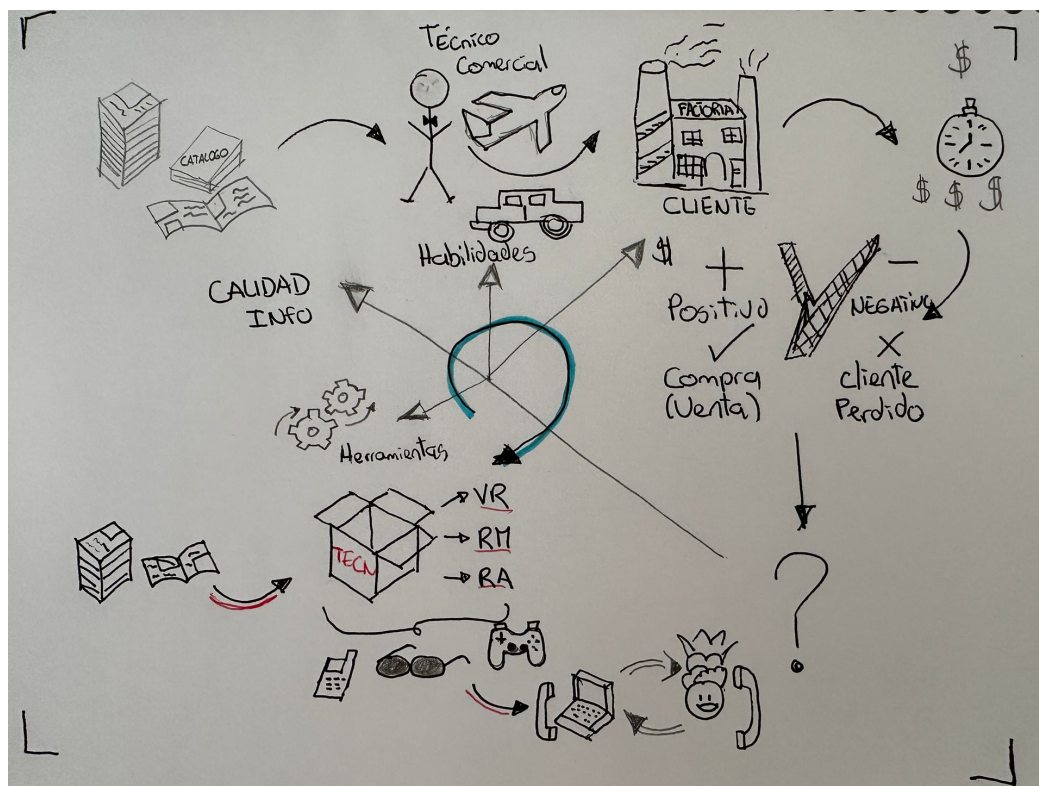 Técnico
Comercial
$
CATALOGO
FACTORIA
$ $ $
CLIENTE
Habilidades
$
+
-
CALIDAD
INFO
Positivo
NEGATIVO
✓
X
Compra
(Venta)
cliente
Perdido
Herramientas
VR
TECN
RM
RA
?